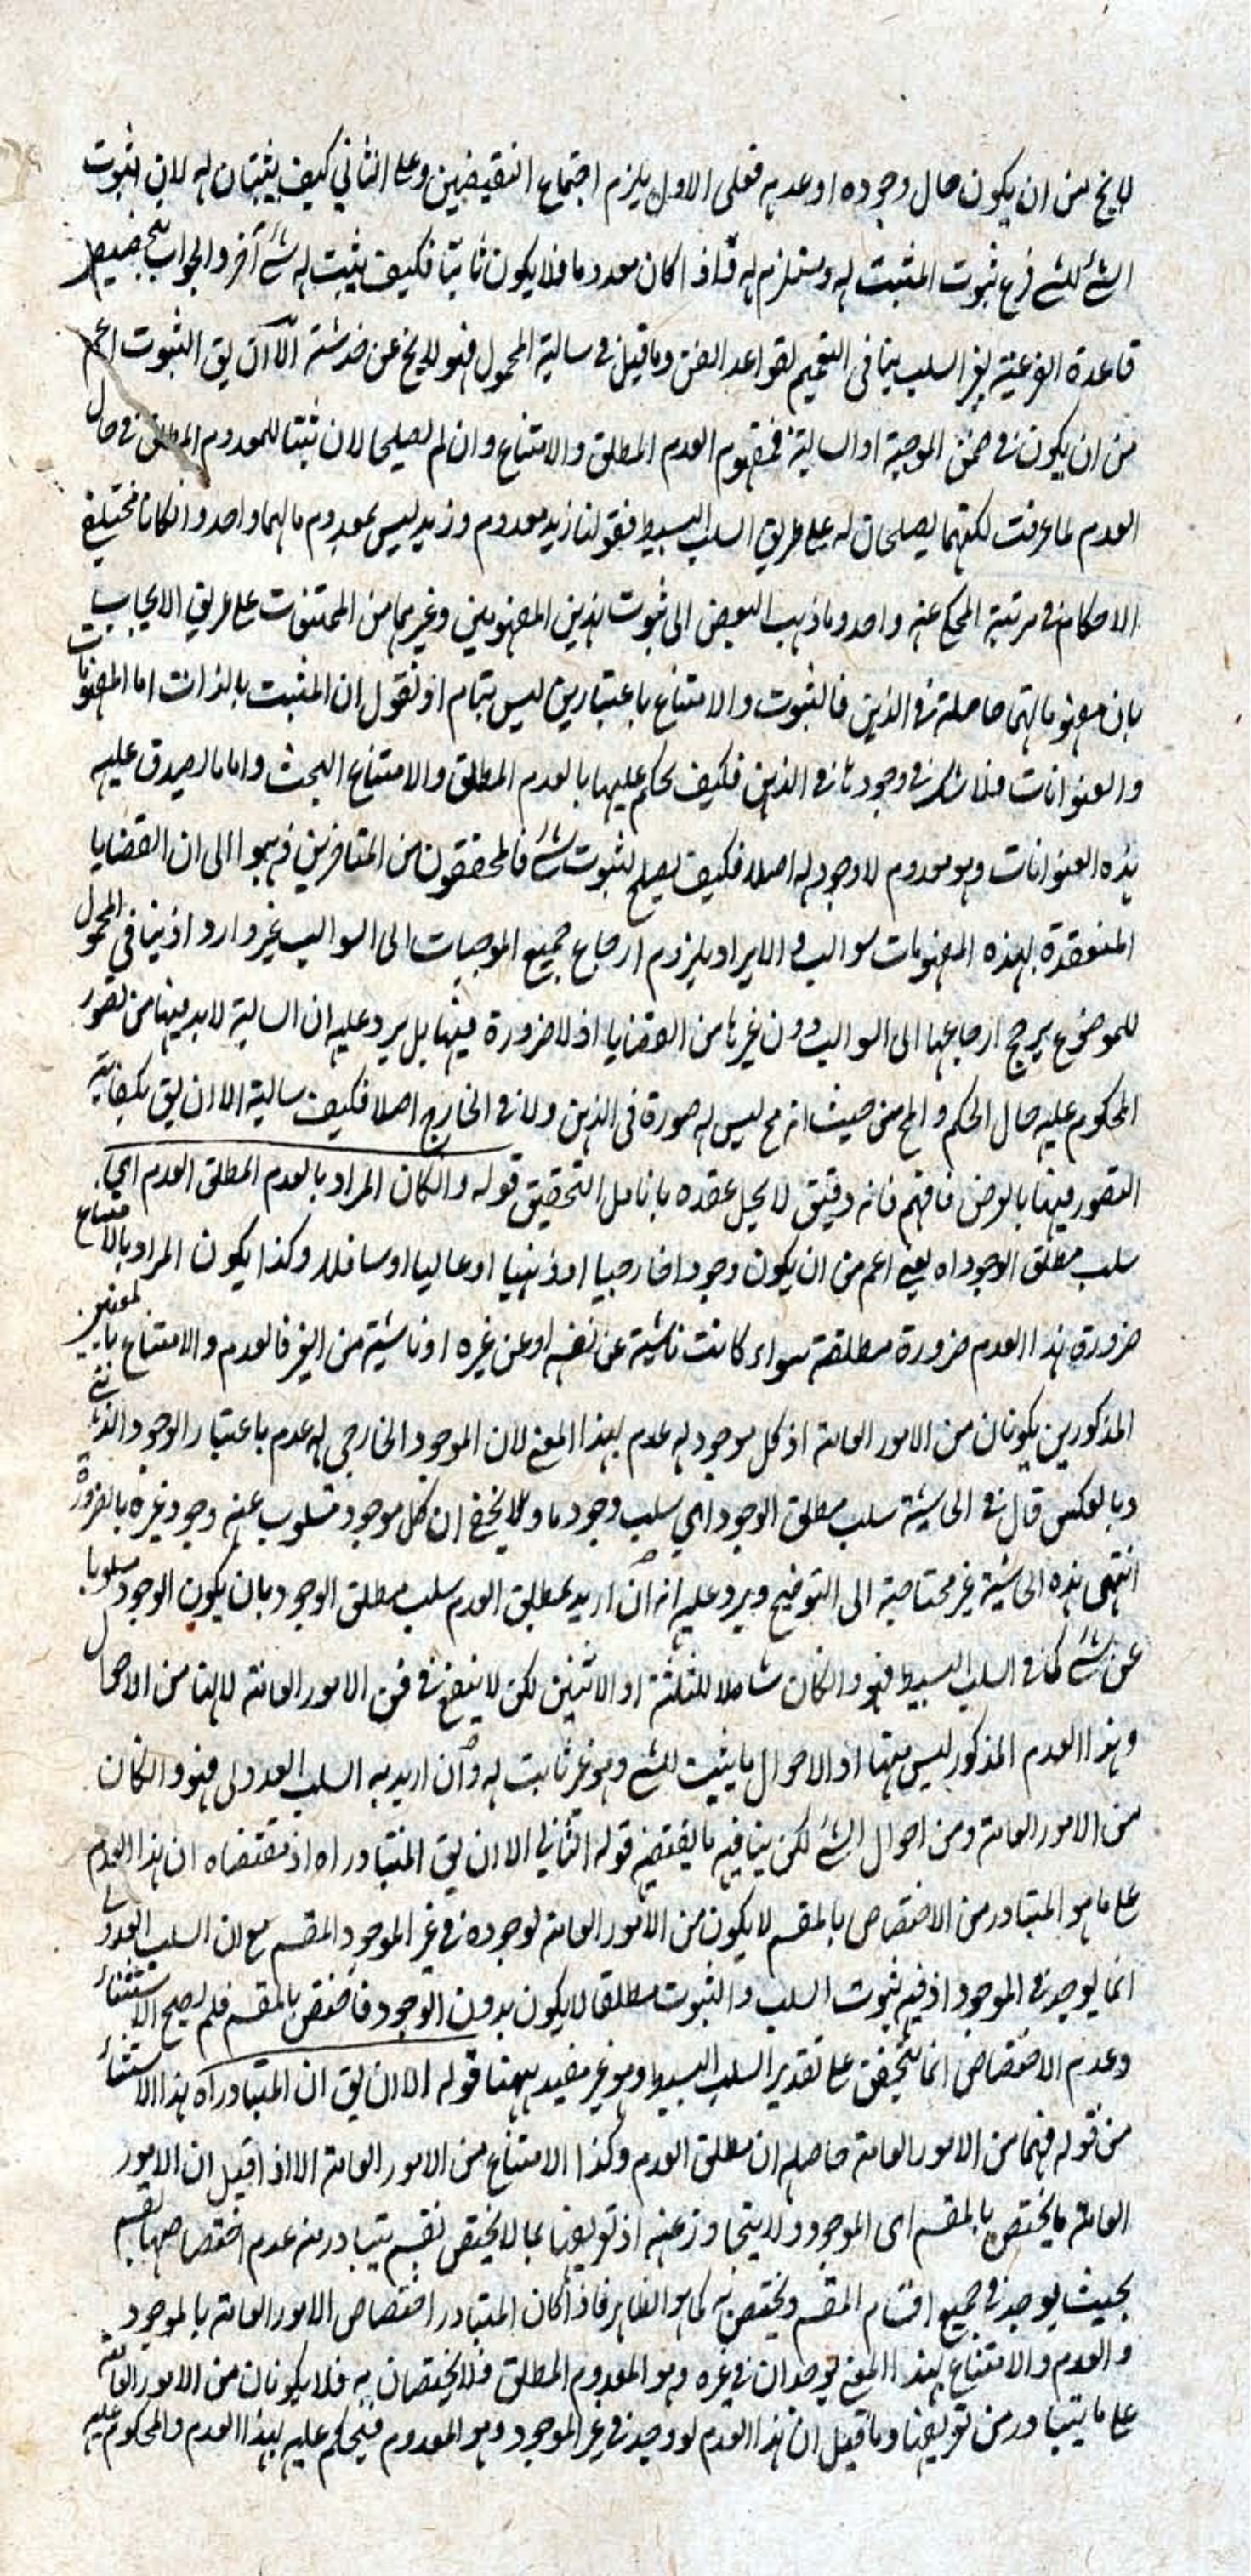 لا يخ من ان يكون حال وجوده او عدمه فعلى الاول يلزم اجتماع النقيضين وعلى الثاني كيف يثبتان له لان ثبوت
الشئ للشئ فرع ثبوت المثبت له ومستلزم له فاذا كان معدوما فلا يكون ثابتا فكيف يثبت له شئ آخر والجواب بتخصيص
قاعدة الفرعية بغير السلب ينافى التعميم لقواعد الفن وما قيل فى سالبة المحمول فهو لا يخ عن خدشة الا ان يق الثبوت اعم
من ان يكون فى ضمن الموجبة او السالبة فمفهوم العدم المطلق والامتناع وان لم يصلحا لان يثبتا للمعدوم المطلق فى حال
العدم لما عرفت لكنهما يصلحان له على طريق السلب البسيط فقولنا زيد معدوم وزيد ليس بمعدوم مالهما واحد وانكانا مختلفى
الاحكام فى مرتبة المحكى عنه واحد وما ذهب البعض الى ثبوت هذين المفهومين وغيرهما من الممتنعات على طريق الايجاب
بان مفهوماتها حاصلة فى الذهن فالثبوت والامتناع باعتبارين ليس بتمام اذ نقول ان المثبت بالذات اما المفهومات
والعنوانات فلا شك فى وجودها فى الذهن فكيف يحكم عليها بالعدم المطلق والامتناع البحت واما ما يصدق عليه
هذه العنوانات وهو معدوم لا وجود له اصلا فكيف يصلح لثبوت شئ فالمحققون من المتاخرين ذهبوا الى ان القضايا
المنعقدة بهذه المفهومات سوالب والايراد بلزوم ارجاع جميع الموجبات الى السوالب غير وارد اذ ينافى المحمول
للموضوع يرجح ارجاعها الى السوالب دون غيرها من القضايا اذ لا ضرورة فيها بل يرد عليه ان السالبة لا بد فيها من تصور
المحكوم عليه حال الحكم والمح من حيث انه مح ليس له صورة فى الذهن ولا فى الخارج اصلا فكيف سالبة الا ان يق بكفاية
التصور فيها بالعرض فافهم فانه دقيق لا يحل عقده بانامل التحقيق قوله وانكان المراد بالعدم المطلق العدم اى
سلب مطلق الوجود اه يعنى اعم من ان يكون وجودا خارجيا او ذهنيا او عاليا او سافلا وكذا يكون المراد بالامتناع
ضرورة هذا العدم ضرورة مطلقة سواء كانت ناشية عن نفسه او عن غيره او ناشية من الغير فالعدم والامتناع بالمعنيين
المذكورين يكونان من الامور العامة اذ كل موجود له عدم بهذا المعنى لان الموجود الخارجى له عدم باعتبار الوجود الذهنى
وبالعكس قال فى الحاشية سلب مطلق الوجود اى سلب وجود ما ولا يخفى ان كل موجود مسلوب عنه وجود غيره بالضرورة
انتهى هذه الحاشية غير محتاجة الى التوضيح ويرد عليه انه ان اريد بمطلق العدم سلب مطلق الوجود بان يكون الوجود مسلوبا
عن شئ كما فى السلب البسيط فهو وانكان شاملا للثلثة او الاثنين لكن لا ينفع فى فن الامور العامة لانها من الاحوال
وهذا العدم المذكور ليس منها اذ الاحوال ما يثبت للشئ وهو غير ثابت له وان اريد به السلب العدولى فهو وانكان
من الامور العامة ومن احوال الشئ لكن ينافيه ما يقتضيه قوله الثانى الا ان يق المتبادر اه اذ مقتضاه ان هذا العدم
على ما هو المتبادر من الاختصاص بالمقسم لا يكون من الامور العامة لوجوده فى غير الموجود المقسم مع ان السلب العدولى
انما يوجد فى الموجود اذ فيه ثبوت السلب والثبوت مطلقا لا يكون بدون الوجود فاختص بالمقسم فلم يصح الاستثناء
وعدم الاختصاص انما يتحقق على تقدير السلب البسيط وهو غير مفيد ههنا قوله الا ان يق ان المتبادر اه هذا الاستثناء
من قوله فهما من الامور العامة حاصله ان مطلق العدم وكذا الامتناع من الامور العامة الا اذا قيل ان الامور
العامة ما يختص بالمقسم اى الموجود ولا يتجاوز عنه اذ تعريفها بما لا يختص بقسم يتبادر منه عدم اختصاصها بقسم
بحيث يوجد فى جميع اقسام المقسم ويختص به كما هو الظاهر فاذا كان المتبادر اختصاص الامور العامة بالموجود
والعدم والامتناع بهذا المعنى يوجدان فى غيره وهو المعدوم المطلق فلا يختصان به فلا يكونان من الامور العامة
على ما يتبادر من تعريفها وما قيل ان هذا العدم لو وجد فى غير الموجود وهو المعدوم فيحكم عليه بهذا العدم والمحكوم عليه